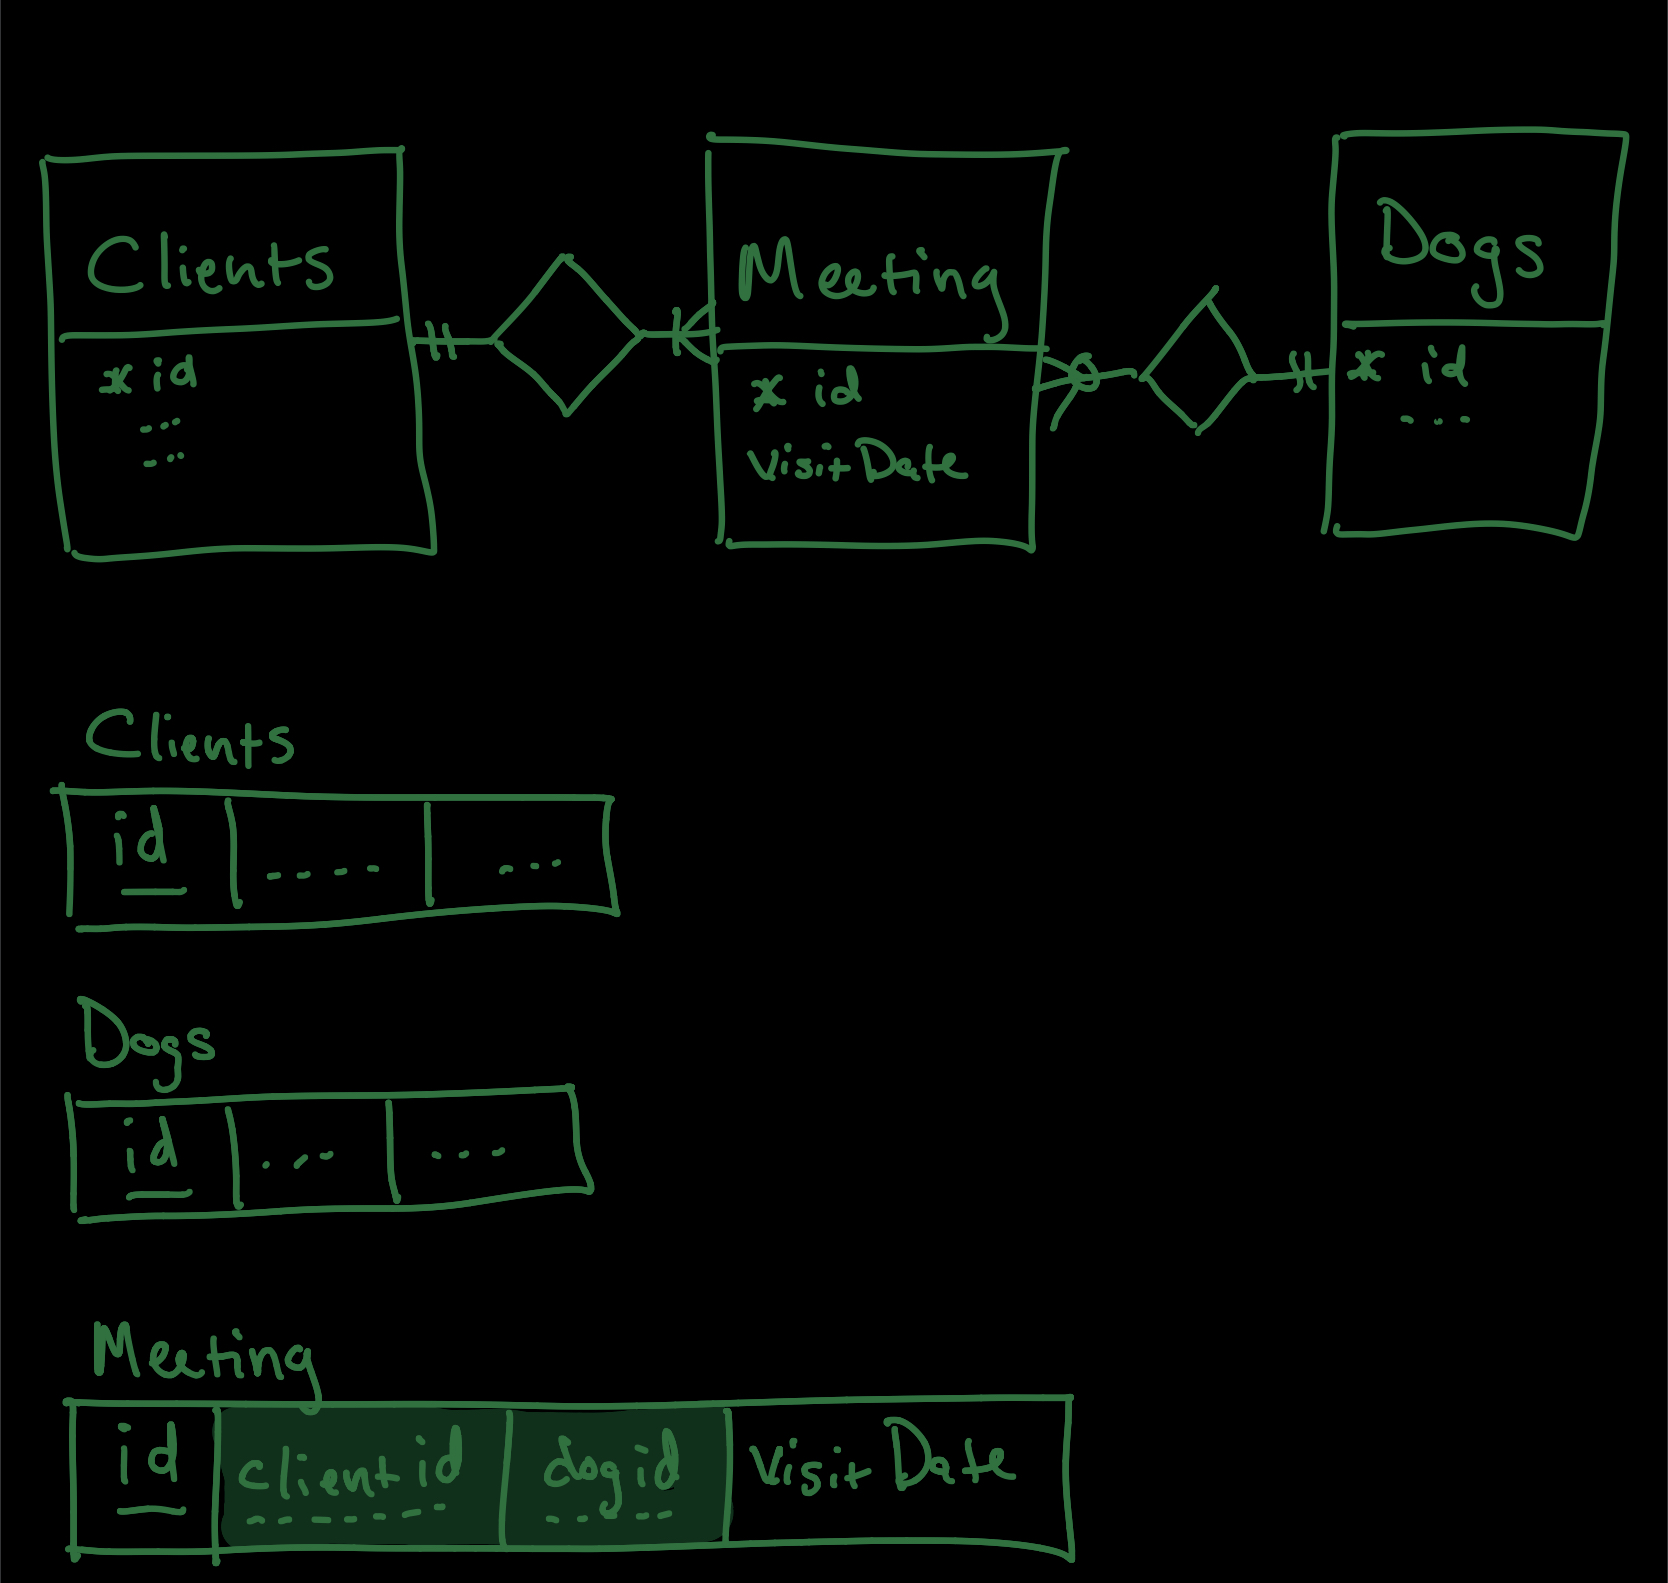 Clients
* id
...
...
Meeting
* id
visitDate
Dogs
* id
...
Clients
id ..... ...
Dogs
id ... ...
Meeting
id clientid dogid visitDate